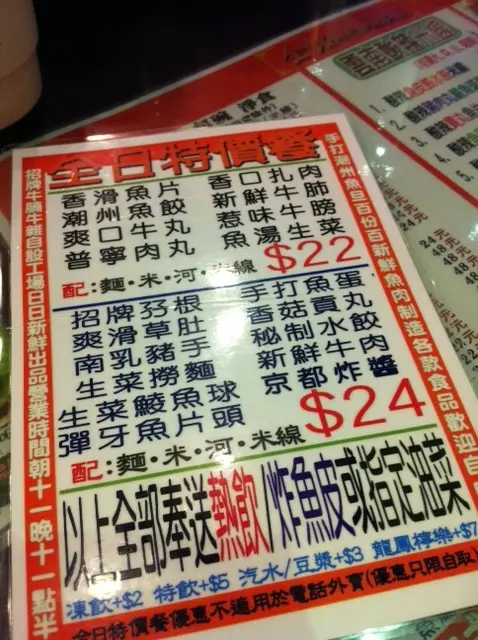 全日特價餐
香滑魚片 香口扎肉
潮州魚餃 新鮮牛肺
爽口牛丸 惹味牛膀
普寧肉丸 魚湯生菜
配:麵・米・河・米線 $22
招牌孖根 手打魚蛋
爽滑草肚 香菇貢丸
南乳豬手 秘制水餃
生菜撈麵 新鮮牛肉
生菜鯪魚球 京都炸醬
彈牙魚片頭 $24
配:麵・米・河・米線
以上全部奉送熱飲/炸魚皮或指定油菜
凍飲+$2 特飲+$5 汽水/豆漿+$3 龍鳳檸樂+$7
全日特價餐優惠不適用於電話外賣(優惠只限自取)
招牌牛腩牛雜自設工場日日新鮮出品營業時間朝十一晚十一點半
手打潮州魚旦百份百新鮮魚肉制造各款食品歡迎自
淨食